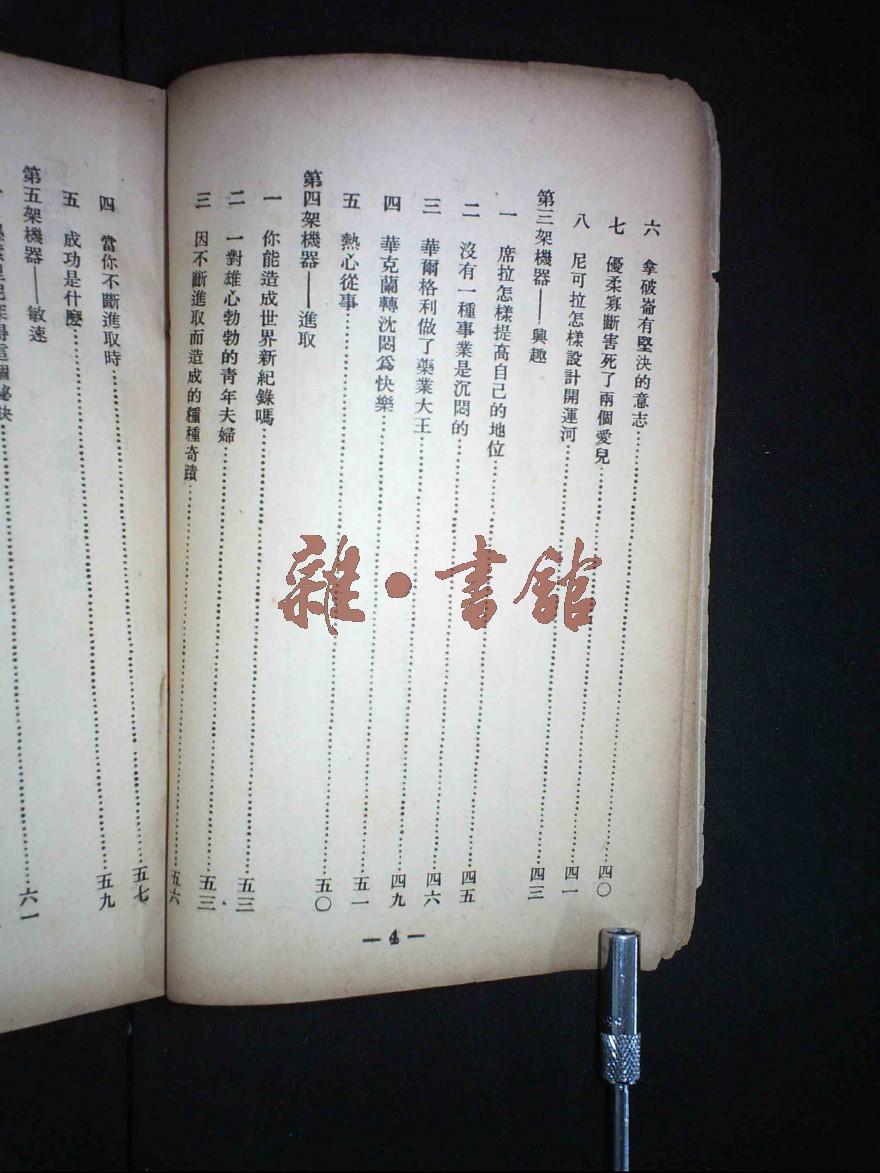 六 拿破崙有堅決的意志……四〇
七 優柔寡斷害死了兩個愛兒……四一
八 尼可拉怎樣設計開運河……四三
第三架機器——興趣
一 席拉怎樣提高自己的地位……四五
二 沒有一種事業是沉悶的……四六
三 華爾格利做了藥業大王……四九
四 華克蘭轉沈悶為快樂……五一
五 熱心從事……五〇
第四架機器——進取
一 你能造成世界新紀錄嗎……五三
二 一對雄心勃勃的青年夫婦……五三
三 因不斷進取而造成的種種奇蹟……五六
—4—
四 當你不斷進取時……五七
五 成功是什麼……五九
第五架機器——敏速
得這個秘訣……六一
雜·書館